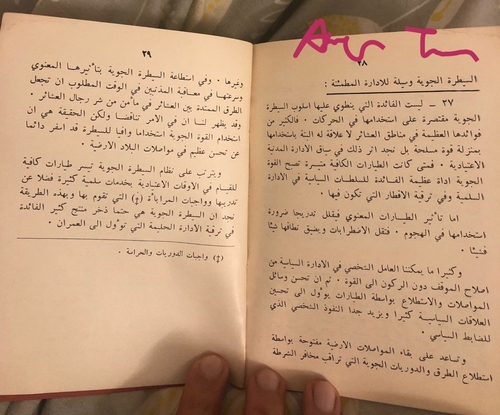 ٢٨
السيطرة الجوية وسيلة للادارة المطمئنة :
٣٧ — ليست الفائدة التي ينطوي عليها اسلوب السيطرة
الجوية مقتصرة على استخدامها في الحركات . فالكثير من
فوائدها العظيمة في مناطق العشائر لا علاقة له البتة باستخدامها
بمنزلة قوة مسلحة بل نجد اثر ذلك في سياق الادارة المدنية
الاعتيادية . فمتى كانت الطيارات الكافية متيسرة تصبح القوة
الجوية اداة عظيمة الفائدة للسلطات السياسية في الادارة
السلمية وفي ترقية الاقطار التي تكون فيها .
اما تأثير الطيارات المعنوي فيقلل تدريجا ضرورة
استخدامها في الهجوم . فتقل الاضطرابات ويضيق نطاقها شيئا
فشيئا .
وكثيرا ما يمكننا العامل الشخصي في الادارة السياسية من
اصلاح الموقف دون الركون الى القوة . ثم ان تحسن وسائل
المواصلات والاستطلاع بواسطة الطيارات يؤول الى تحسين
العلاقات السياسية كثيرا ويزيد جدا النفوذ الشخصي الذي
للضابط السياسي .
وتساعد على بقاء المواصلات الارضية مفتوحة بواسطة
استطلاع الطرق والدوريات الجوية التي تراقب مخافر الشرطة
٢٩
وغيرها . وفي استطاعة السيطرة الجوية بتأثيرها المعنوي
وسرعتها في معاقبة المذنبين في الوقت المطلوب ان تجعل
الطرق الممتدة بين العشائر في مأمن من شر رجال العشائر .
وقد يظهر لنا ان في الامر تناقضا ولكن الحقيقة هي ان
استخدام القوة الجوية استخداما وافيا للسيطرة قد اسفر دائما
عن تحسن عظيم في مواصلات البلاد الارضية .
ويترتب على نظام السيطرة الجوية تيسر طيارات كافية
للقيام في الاوقات الاعتيادية بخدمات سلمية كثيرة فضلا عن
تدريبها وواجبات المراباة التي تقوم بها وبهذه الطريقة
نجد ان السيطرة الجوية هي حتما ذخر منتج كثير الفائدة
في ترقية الادارة الحليمة التي تؤول الى العمران .
واجبات الدوريات والحراسة .